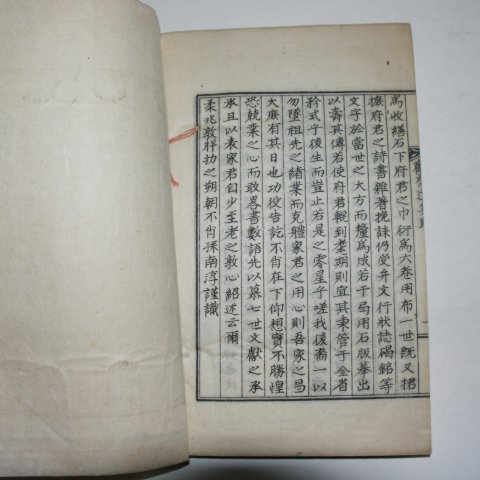 爲收緝石下府君之巾衍爲六卷用布一世旣又捃
摭府君之詩書雜著挽誄仍受弁文行狀誌碣銘等
文字於當世之大方而釐爲成若干局用石版摹出
以壽其傳若使府君輥到耄期則宜其東管于全省
矜式乎後生而豈止若是之零星乎嗟我後裔一以
勿墜祖先之緖業而克體家君之用心則吾家之昌
大庶有其日也功役告訖不肖在下仰想實不勝惶
恐兢業之心而敢卷書數語先以慕七世文獻之承
承且以表家君自少至老之敦心紹述云爾
柔兆敦牂窉之朔朝不肖孫南淳謹識